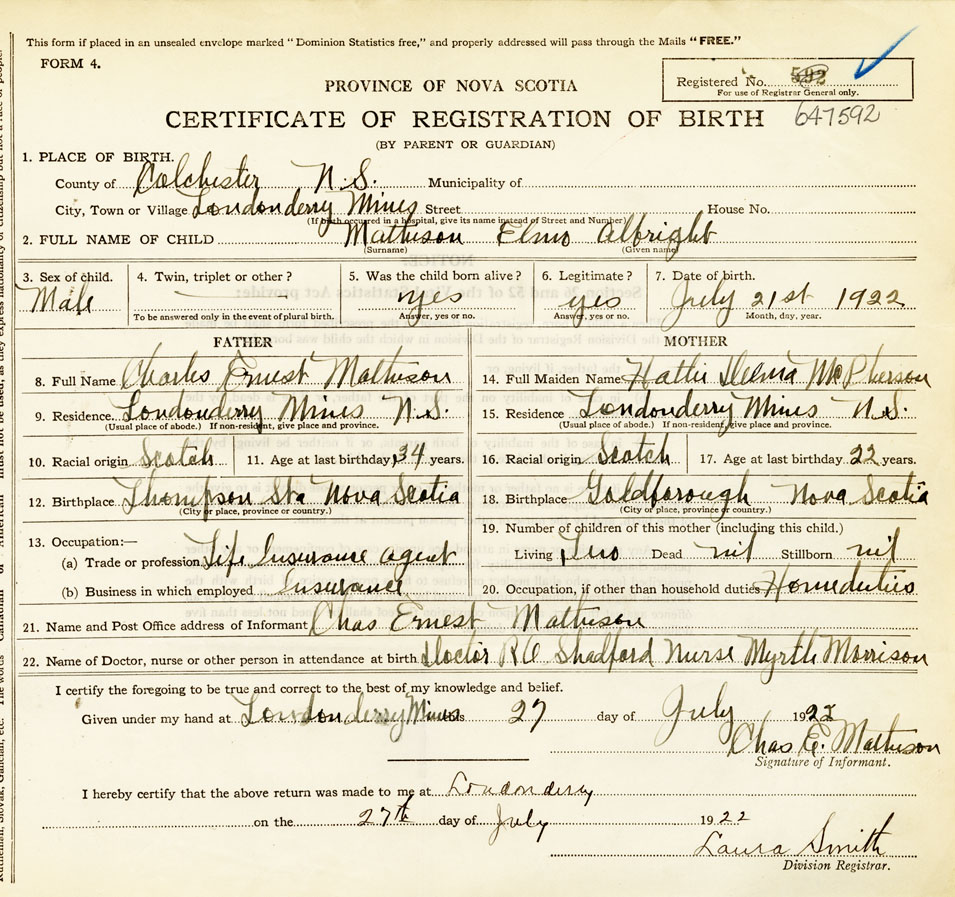 This form if placed in an unsealed envelope marked "Dominion Statistics free," and properly addressed will pass through the Mails "FREE."
FORM 4.
Registered No. 592
For use of Registrar General only.
PROVINCE OF NOVA SCOTIA
CERTIFICATE OF REGISTRATION OF BIRTH 647592
(BY PARENT OR GUARDIAN)
1. PLACE OF BIRTH.
County of Colchester N.S. Municipality of
City, Town or Village Londonderry Mines Street House No.
(If birth occurred in a hospital, give its name instead of Street and Number)
2. FULL NAME OF CHILD Matheson Elmo Albright
(Surname) (Given name)
3. Sex of child. 4. Twin, triplet or other? 5. Was the child born alive? 6. Legitimate? 7. Date of birth.
Male yes yes July 21st 1922
To be answered only in the event of plural birth. Answer, yes or no. Answer, yes or no. Month, day, year.
FATHER MOTHER
8. Full Name Charles Ernest Matheson 14. Full Maiden Name Hattie Delma McPherson
9. Residence. Londonderry Mines N.S. 15. Residence Londonderry Mines N.S.
(Usual place of abode.) If non-resident, give place and province. (Usual place of abode.) If non-resident, give place and province.
10. Racial origin Scotch 11. Age at last birthday 34 years. 16. Racial origin Scotch 17. Age at last birthday 22 years.
12. Birthplace Thompson Sta Nova Scotia 18. Birthplace Goldborough Nova Scotia
(City or place, province or country.) (City or place, province or country.)
19. Number of children of this mother (including this child.)
13. Occupation:—
(a) Trade or profession Life Insurance agent Living Two Dead nil Stillborn nil
(b) Business in which employed Insurance 20. Occupation, if other than household duties Homeduties
21. Name and Post Office address of Informant Chas Ernest Matheson
22. Name of Doctor, nurse or other person in attendance at birth Doctor R O Shadford Nurse Myrtle Morrison
I certify the foregoing to be true and correct to the best of my knowledge and belief.
Given under my hand at Londonderry Mines 27 day of July 1922
Chas E. Matheson
Signature of Informant.
I hereby certify that the above return was made to me at Londonderry
on the 27th day of July 1922
Laura Smith
Division Registrar.